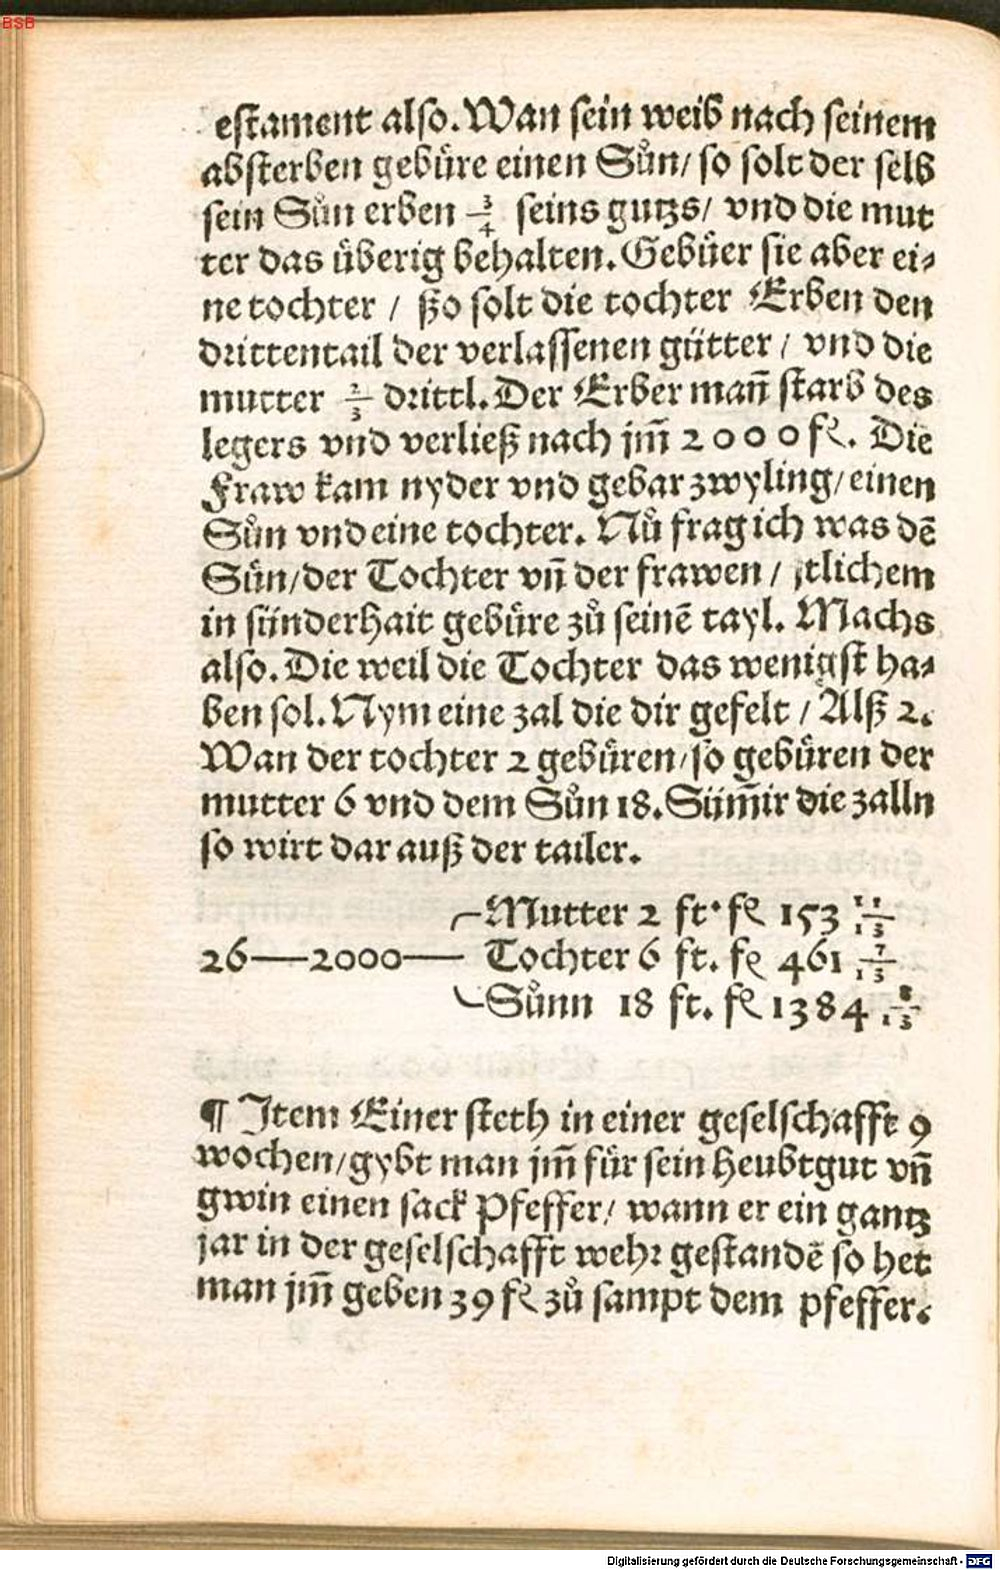 BSB
estament also. Wan sein weib nach seinem
absterben gebüre einen Sůn/ so solt der selb
sein Sůn erben 3/4 seins gutzs/ vnd die mut
ter das überig behalten. Gebüer sie aber ei⸗
ne tochter / ßo solt die tochter Erben den
drittentail der verlassenen gütter / vnd die
mutter 2/3 drittl. Der Erber mañ starb des
legers vnd verließ nach jm̃ 2000 fl. Die
Fraw kam nyder vnd gebar zwyling/ einen
Sůn vnd eine tochter. Nů frag ich was dẽ
Sůn/ der Tochter vñ der frawen / jtlichem
in sünderhait gebüre zů seinẽ tayl. Machs
also. Die weil die Tochter das wenigst ha⸗
ben sol. Nym eine zal die dir gefelt / Alß 2.
Wan der tochter 2 gebüren/ so gebüren der
mutter 6 vnd dem Sůn 18. Süm̃ir die zalln
so wirt dar auß der tailer.
Mutter 2 ft. fl 153 11/13
26—2000— Tochter 6 ft. fl 461 7/13
Sůnn 18 ft. fl 1384 8/13
¶ Item Einer steth in einer geselschafft 9
wochen/ gybt man jm̃ für sein heubtgut vñ
gwin einen sack Pfeffer/ wann er ein gantz
jar in der geselschafft wehr gestandẽ so het
man jm̃ geben 39 fl zů sampt dem pfeffer.
Digitalisierung gefördert durch die Deutsche Forschungsgemeinschaft - DFG